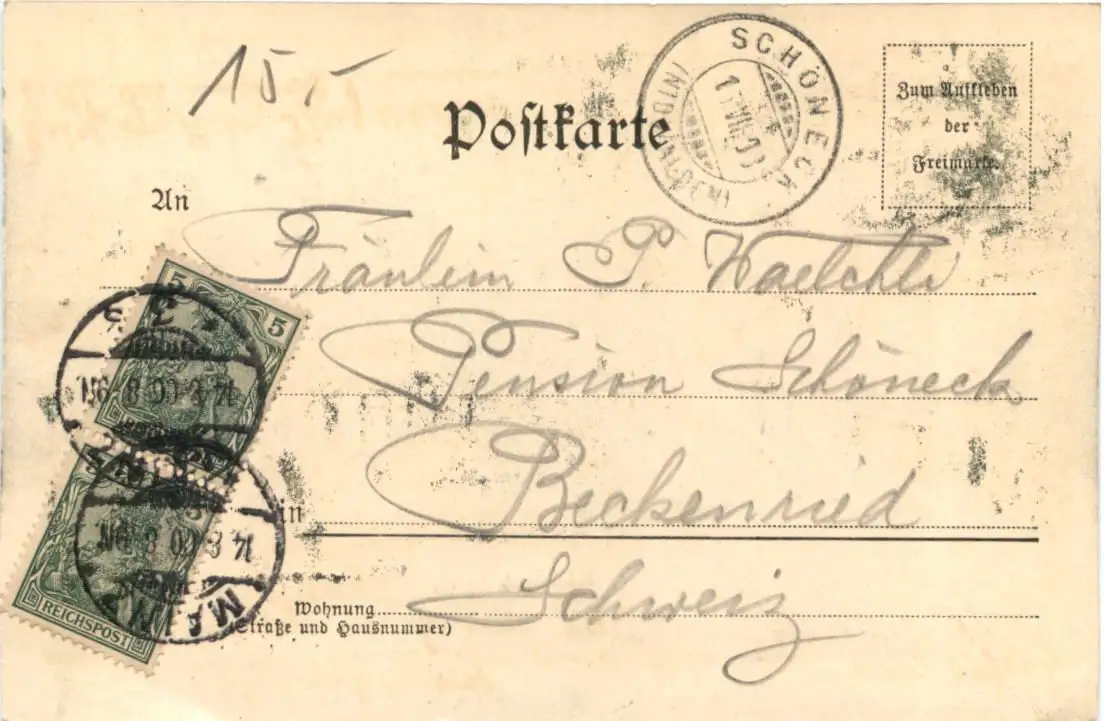 15.-
Postkarte
SCHÖNECK
Zum Aufkleben
der
Freimarke.
An
Fräulein P. Waelchli
5
5
Pension Schöneck
14 8 00 8-9N
in Beckenried
14 8 00 8-9N
MAIN
REICHSPOST
Schweiz
Wohnung
(Straße und Hausnummer)